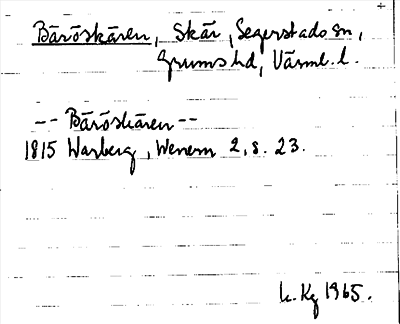 Bäröskären, Skär, Segerstads sn,
Grums hd, Värml. l.
-- Bäröskären --
1815 Warberg, Wenern 2, s. 23.
L. Kg 1965.